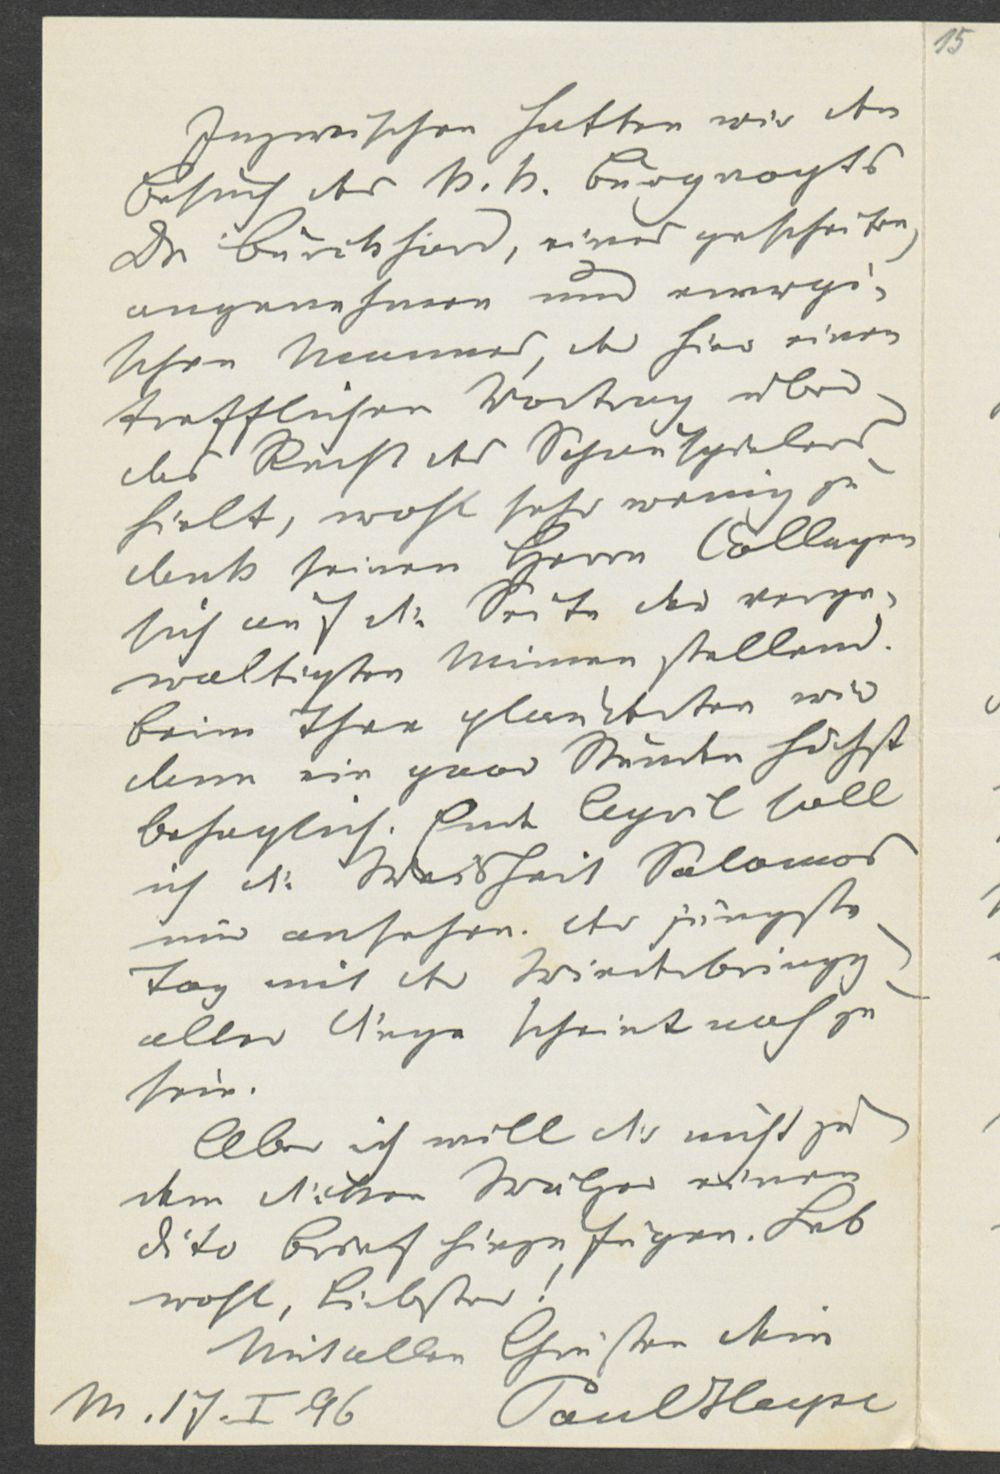 15
Inzwischen hatten wir den
Besuch des k. k. Burgvogts
Dr Burckhard, eines gescheiten,
angenehmen und energi-
schen Mannes, der hier einen
trefflichen Vortrag über
das Recht des Schauspielers
hielt, wohl sehr wenig zu
Dank seinen Herrn Collegen
sich auf die Seite der verge-
waltigten Mimen stellend.
Beim Thee plauderten wir
dann ein paar Stunden höchst
behaglich. Ende April soll
ich die Weisheit Salomos
mir ansehen. Der jüngste
Tag mit der Wiederbringg
aller Dinge scheint nah zu
sein.
Aber ich will dir nicht zu
dem dicken Wälzer einen
dito Brief hinzufügen. Leb
wohl, Liebster!
Mit allen Grüßen dein
M. 17. I 96 Paul Heyse